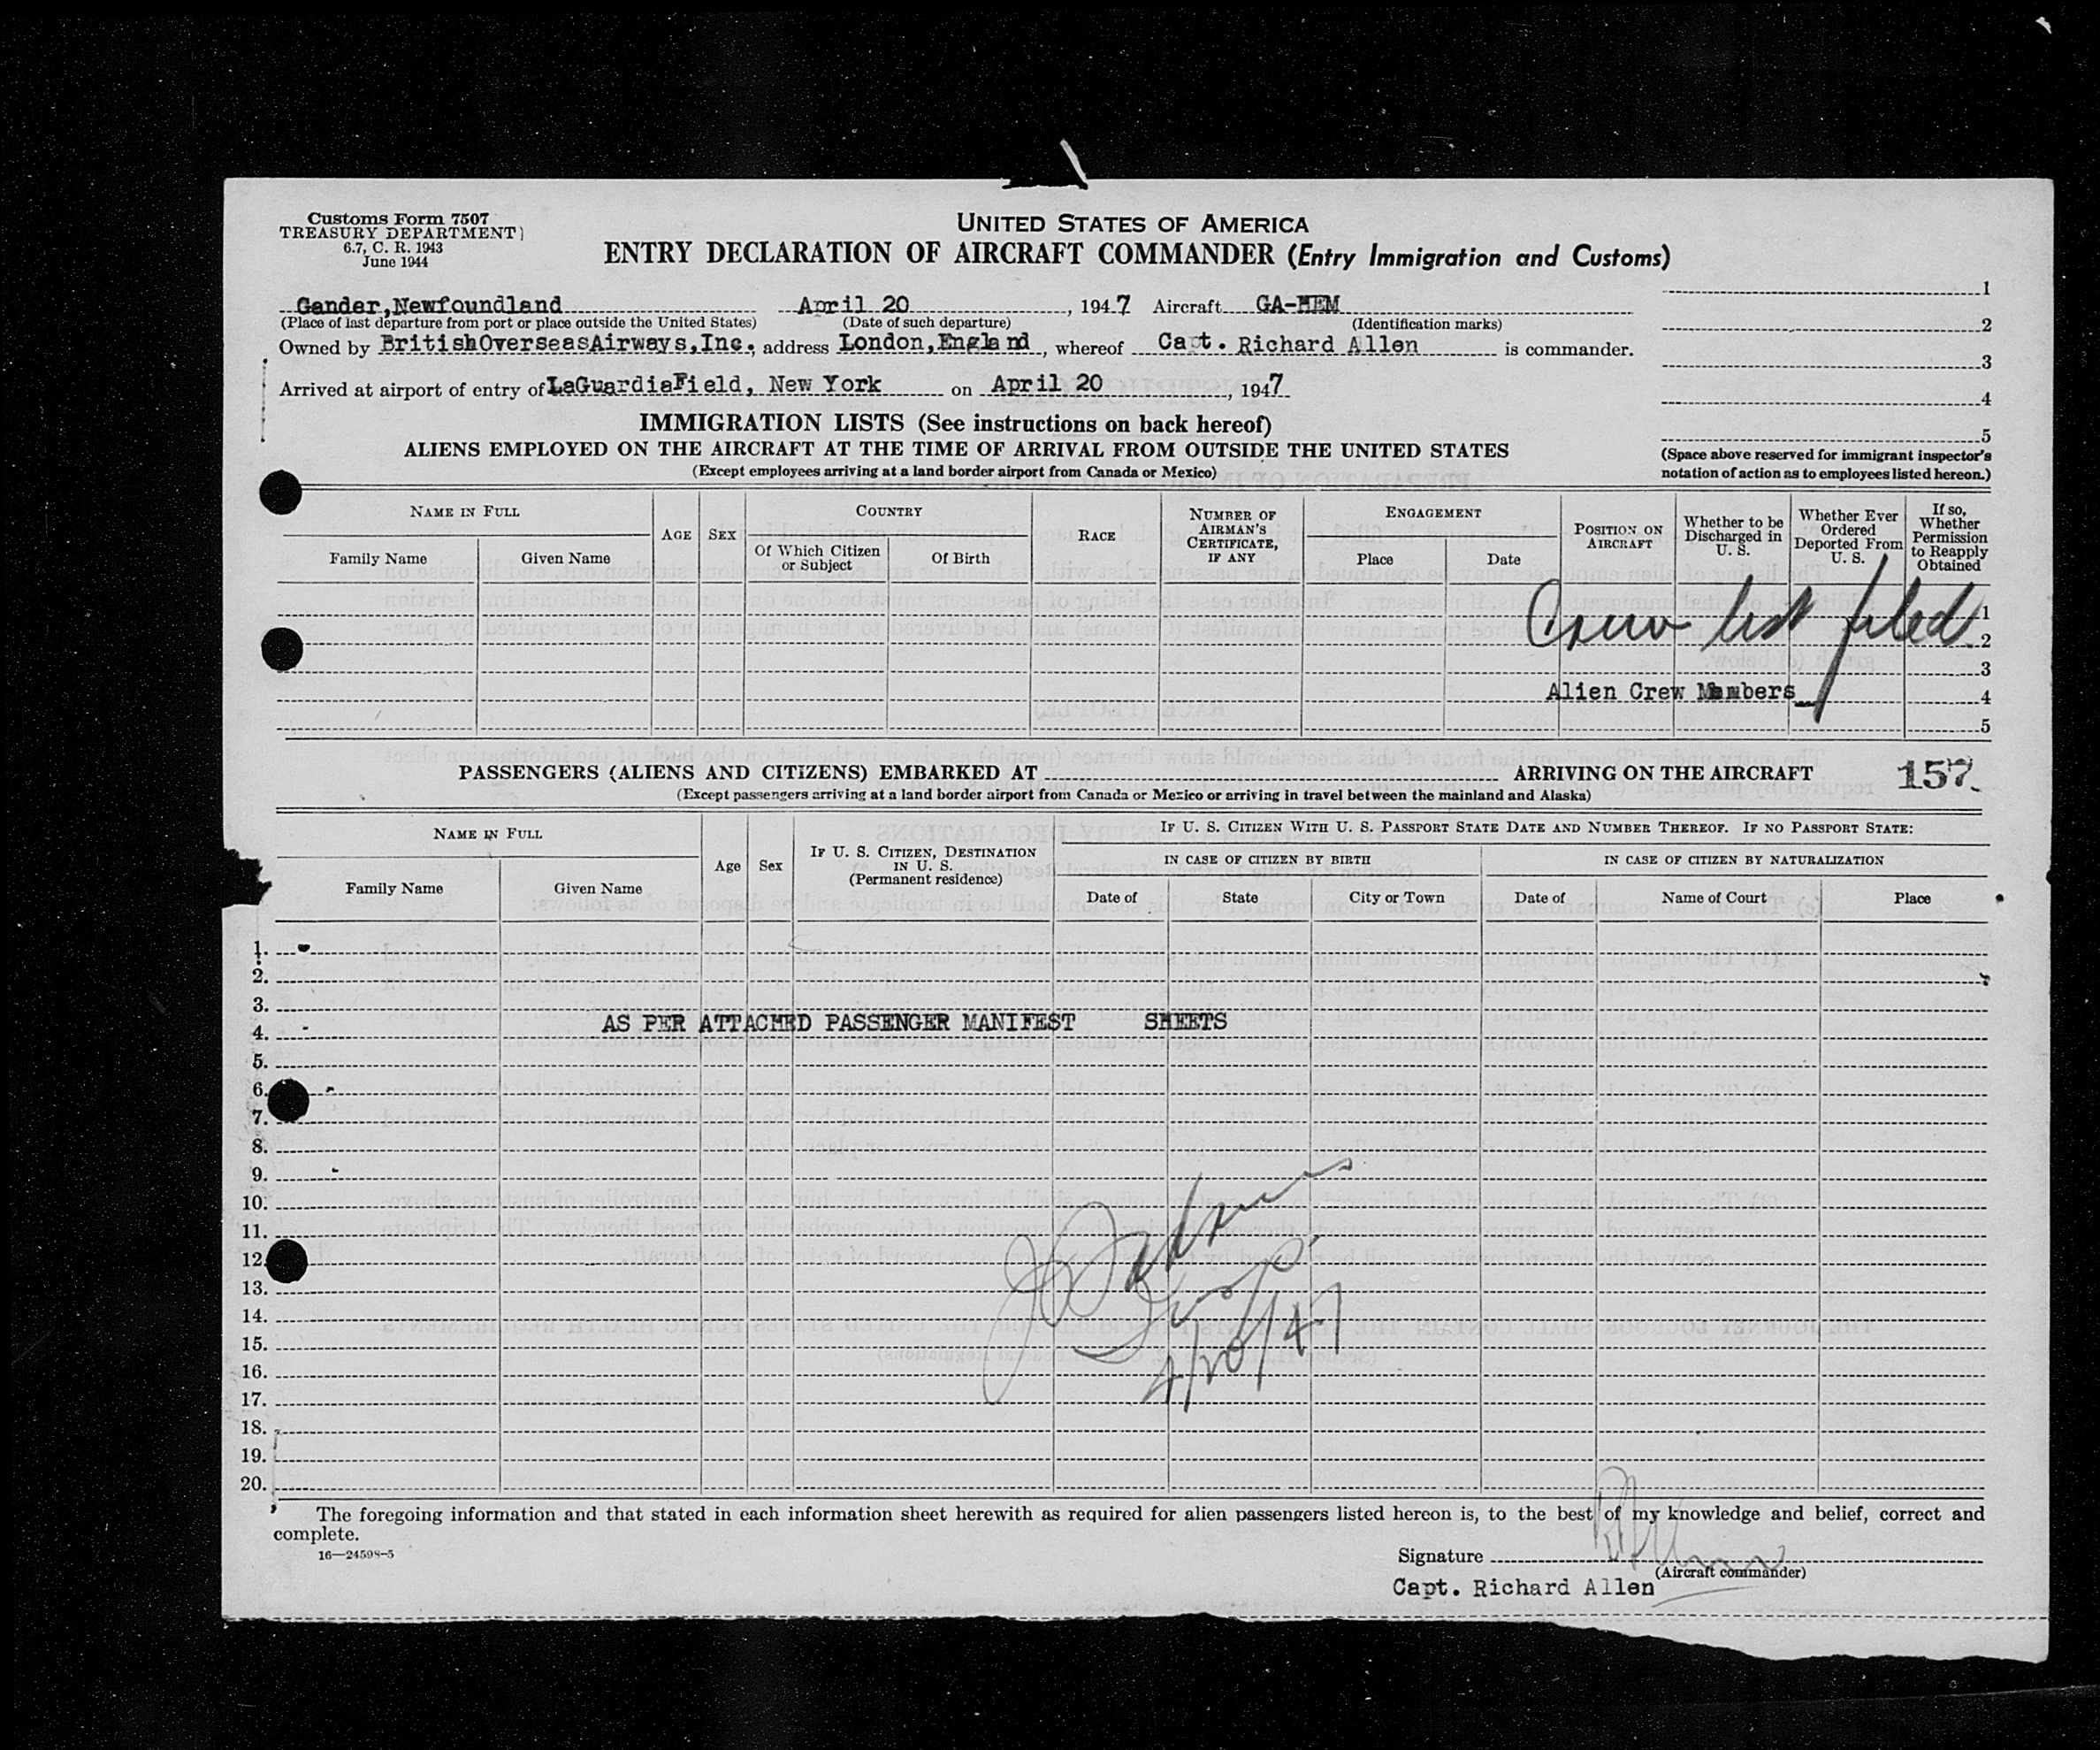 Customs Form 7507
TREASURY DEPARTMENT
6.7, C. R. 1943
June 1944
UNITED STATES OF AMERICA
ENTRY DECLARATION OF AIRCRAFT COMMANDER (Entry Immigration and Customs)
Gander,Newfoundland April 20, 1947 Aircraft GA-HEM
(Place of last departure from port or place outside the United States) (Date of such departure) (Identification marks)
Owned by BritishOverseasAirways,Inc., address London,England, whereof Capt. Richard Allen is commander.
Arrived at airport of entry of LaGuardiaField, New York on April 20, 1947
1
2
3
4
5
(Space above reserved for immigrant inspector's
notation of action as to employees listed hereon.)
IMMIGRATION LISTS (See instructions on back hereof)
ALIENS EMPLOYED ON THE AIRCRAFT AT THE TIME OF ARRIVAL FROM OUTSIDE THE UNITED STATES
(Except employees arriving at a land border airport from Canada or Mexico)
NAME IN FULL
Family Name
Given Name
AGE
SEX
COUNTRY
Of Which Citizen
or Subject
Of Birth
RACE
NUMBER OF
AIRMAN'S
CERTIFICATE,
IF ANY
ENGAGEMENT
Place
Date
POSITION ON
AIRCRAFT
Whether to be
Discharged in
U. S.
Whether Ever
Ordered
Deported From
U. S.
If so,
Whether
Permission
to Reapply
Obtained
Crew list filed
1
2
3
Alien Crew Members 4
5
PASSENGERS (ALIENS AND CITIZENS) EMBARKED AT ARRIVING ON THE AIRCRAFT 157
(Except passengers arriving at a land border airport from Canada or Mexico or arriving in travel between the mainland and Alaska)
NAME IN FULL
Family Name
Given Name
Age
Sex
IF U. S. CITIZEN, DESTINATION
IN U. S.
(Permanent residence)
IF U. S. CITIZEN WITH U. S. PASSPORT STATE DATE AND NUMBER THEREOF. IF NO PASSPORT STATE:
IN CASE OF CITIZEN BY BIRTH
Date of
State
City or Town
IN CASE OF CITIZEN BY NATURALIZATION
Date of
Name of Court
Place
1.
2.
3.
4. AS PER ATTACHED PASSENGER MANIFEST SHEETS
5.
6.
7.
8.
9.
10.
11.
12.
13.
14.
15.
4/20/47
16.
17.
18.
19.
20.
The foregoing information and that stated in each information sheet herewith as required for alien passengers listed hereon is, to the best of my knowledge and belief, correct and
complete.
16—24598-5
Signature
(Aircraft commander)
Capt. Richard Allen